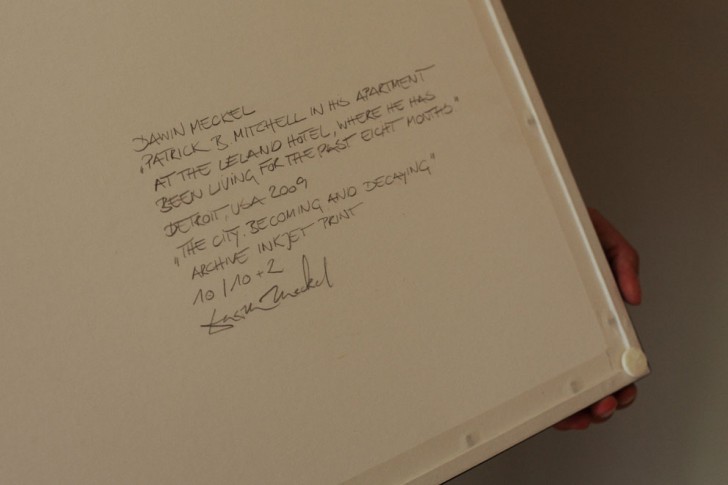 DAWIN MECKEL
„PATRICK B MITCHELL IN HIS APARTMENT
AT THE LELAND HOTEL, WHERE HE HAS
BEEN LIVING FOR THE PAST EIGHT MONTHS“
DETROIT, USA 2009
„THE CITY. BECOMING AND DECAYING“
ARCHIVE INKJET PRINT
10/10+2
Dawin Meckel